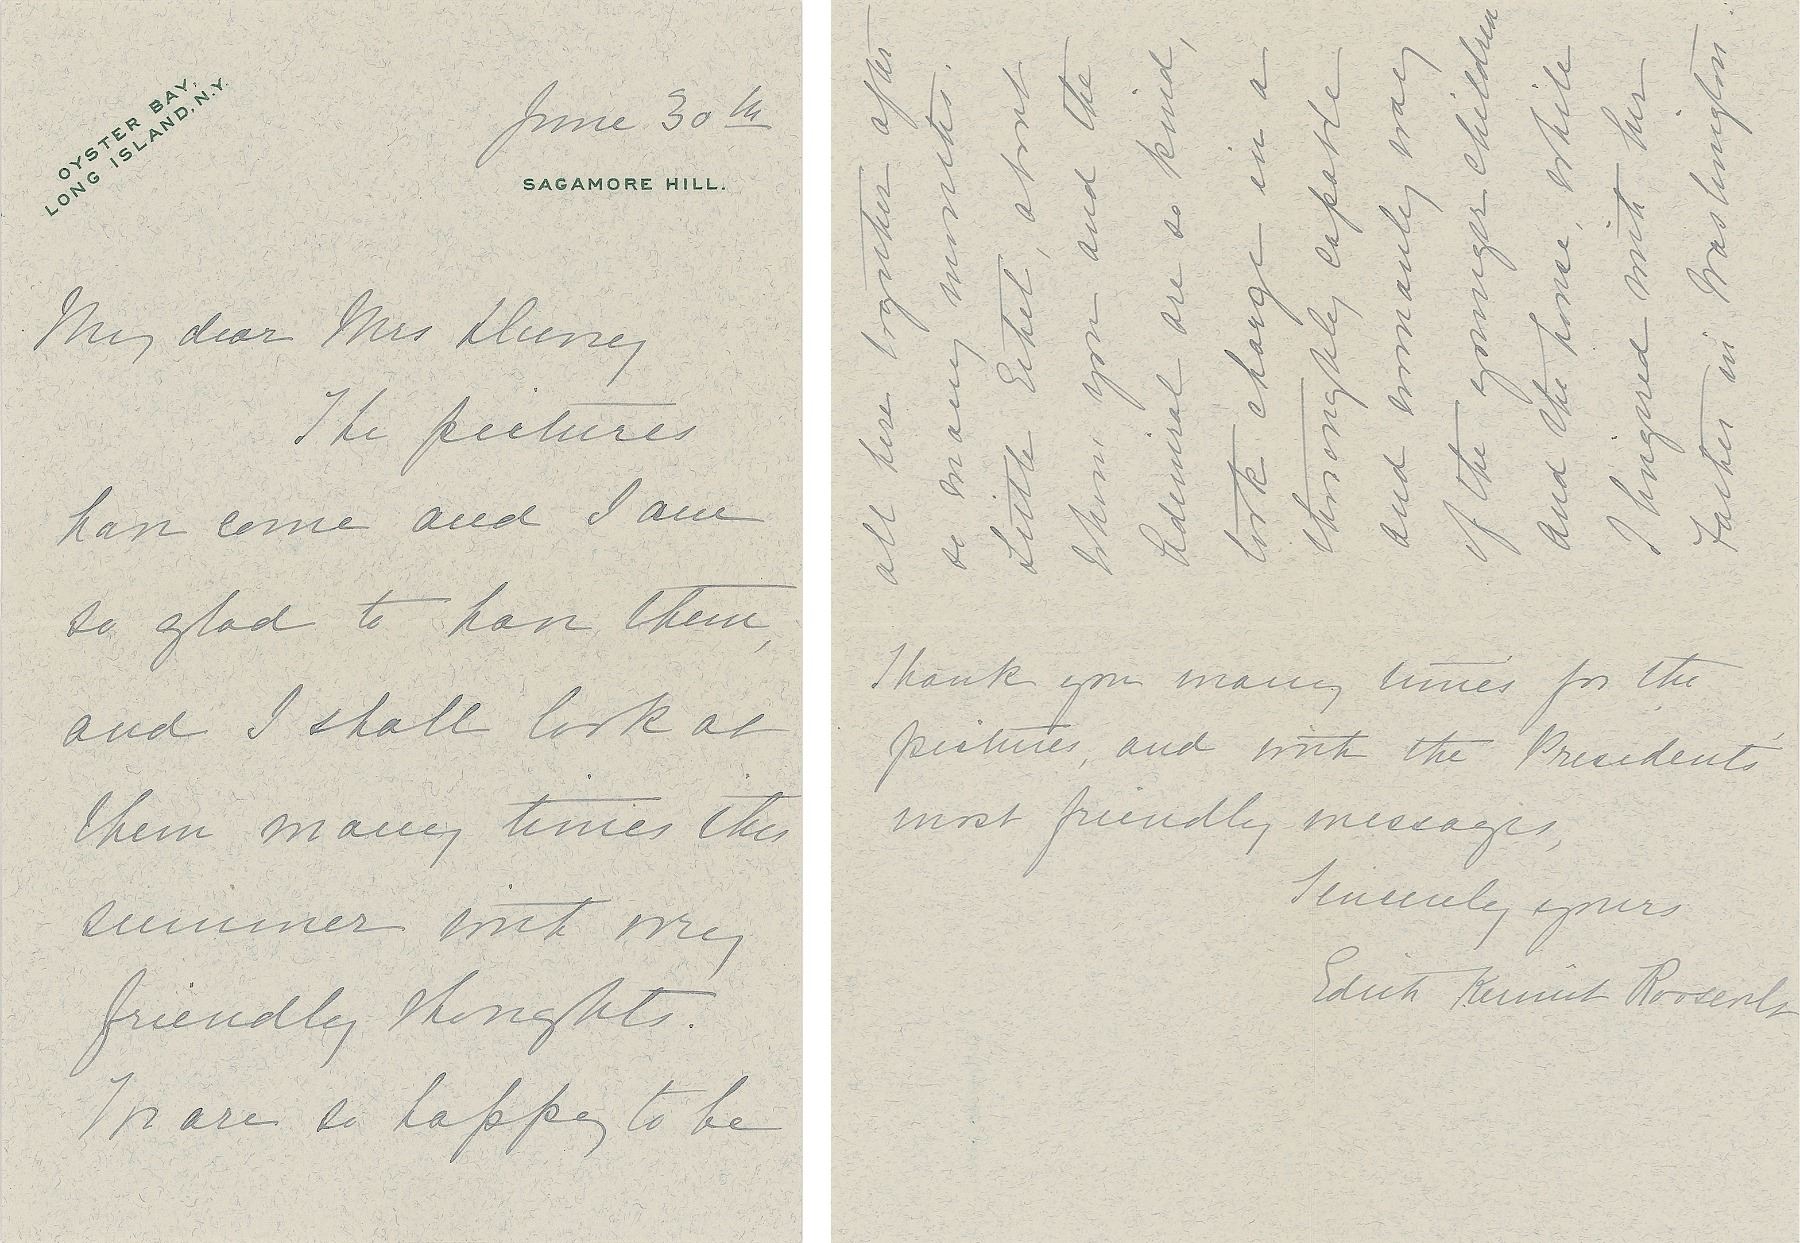 OYSTER BAY,
LONG ISLAND, N.Y.
June 30th
SAGAMORE HILL.
My dear Mrs
The pictures
have come and I am
so glad to have them,
and I shall look at
them many times this
summer with very
friendly thoughts.
We are so happy to be
all here together after
so many months.
Little Ethel, about
whom you and the
Admiral are so kind,
took charge in a
thoroughly capable
and womanly way
of the younger children
and the house, while
I lingered with her
Father in Washington.
Thank you many times for the
pictures, and with the Presidents
most friendly messages,
Sincerely yours
Edith Kermit Roosevelt